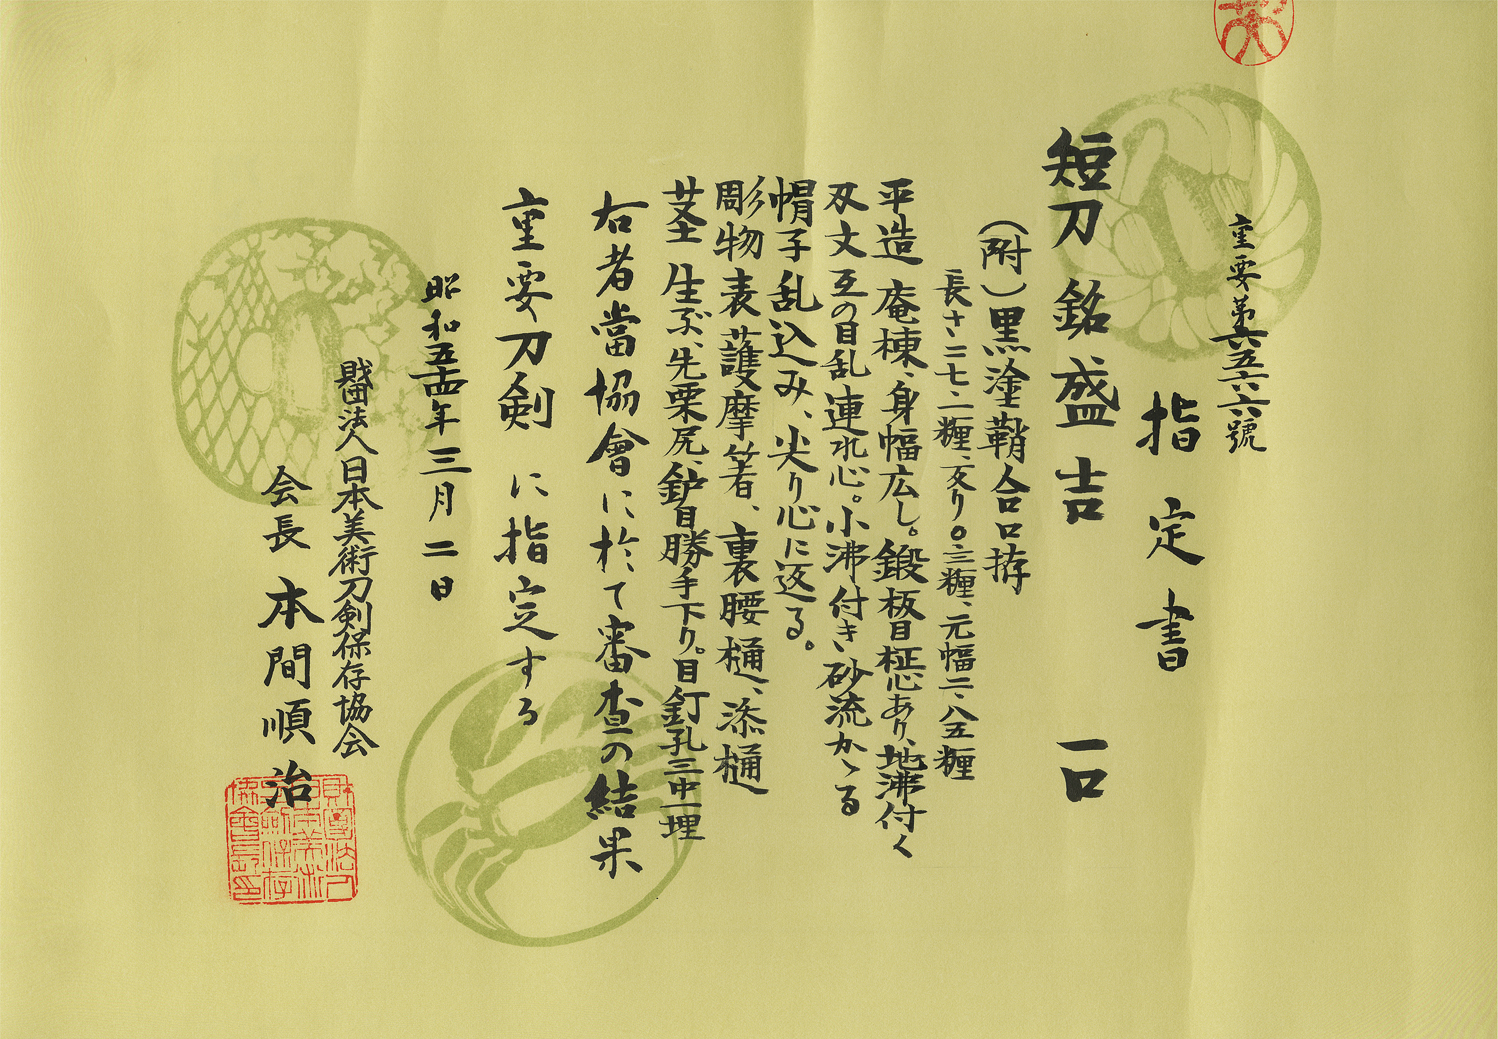 重要第六五六六號
指定書
短刀 銘 盛吉 一口
(附)黒塗鞘合口拵
長さ二七、二糎、反り〇、三糎、元幅二、八五糎
平造 庵棟、身幅広し。鍛板目柾心あり、地沸付く
刃文互の目乱連れ心。小沸付き、砂流かゝる
帽子乱込み、尖り心に返る。
彫物表護摩箸、裏腰樋、添樋
茎 生ぶ、先栗尻、鈩目勝手下り。目釘孔三中一埋
右者當協會に於て審査の結果
重要刀剣 に指定する
昭和五十四年三月二日
財団法人日本美術刀剣保存協会
会長 本間順治